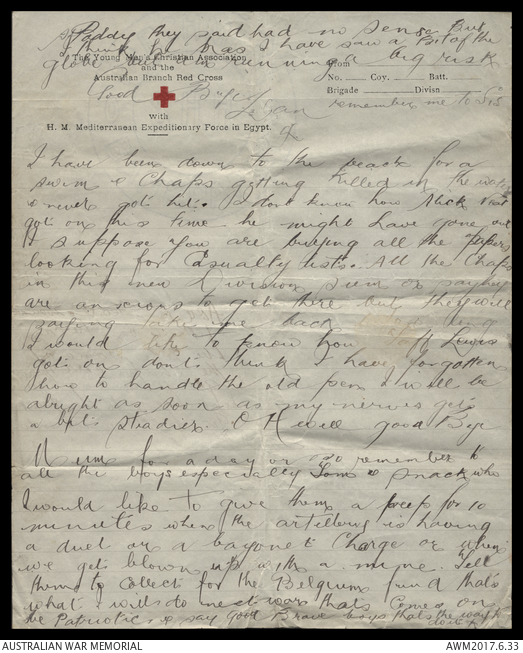 Paddy they said had no sense But
I think he has I have saw a Bit of the
globe but I'm running a big risk
The Young Men's Christian Association
and the
Australian Branch Red Cross
With
H. M. Mediterranean Expeditionary Force in Egypt.
From
No. Coy. Batt.
Brigade Divisn
Good Bye
remember me to Sis
I have been down to the beach for a
swim & Chaps getting killed in the water
& never got hit. I dont know how Mick
got on this time he might have gone out
I suppose you are buying all the papers
looking for Casualty lists. All the Chaps
in this new Division
are anxious to get there but they will
saying take me back
I would like to know how Lewis
got on dont think I have forgotten
how to handle the old pen I will be
alright as soon as my nerves get
a bit steadier. OK will good Bye
Mum for a day or so remember to
all the boys especially Tom & who
I would like to give them a peep for 10
minutes when the artillery is having
a duel or a bayonet Charge or when
we get blown up with a mine. Tell
them to collect for the Belgium fund that's
what wills do next war thats Comes on
be Patriotic & say good Brave boys thats the way to
do it
AUSTRALIAN WAR MEMORIAL
AWM2017.6.33